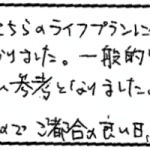 ちらのライフプランに
りました。一般的
い参考となりました。
ので ご都合の良い日、